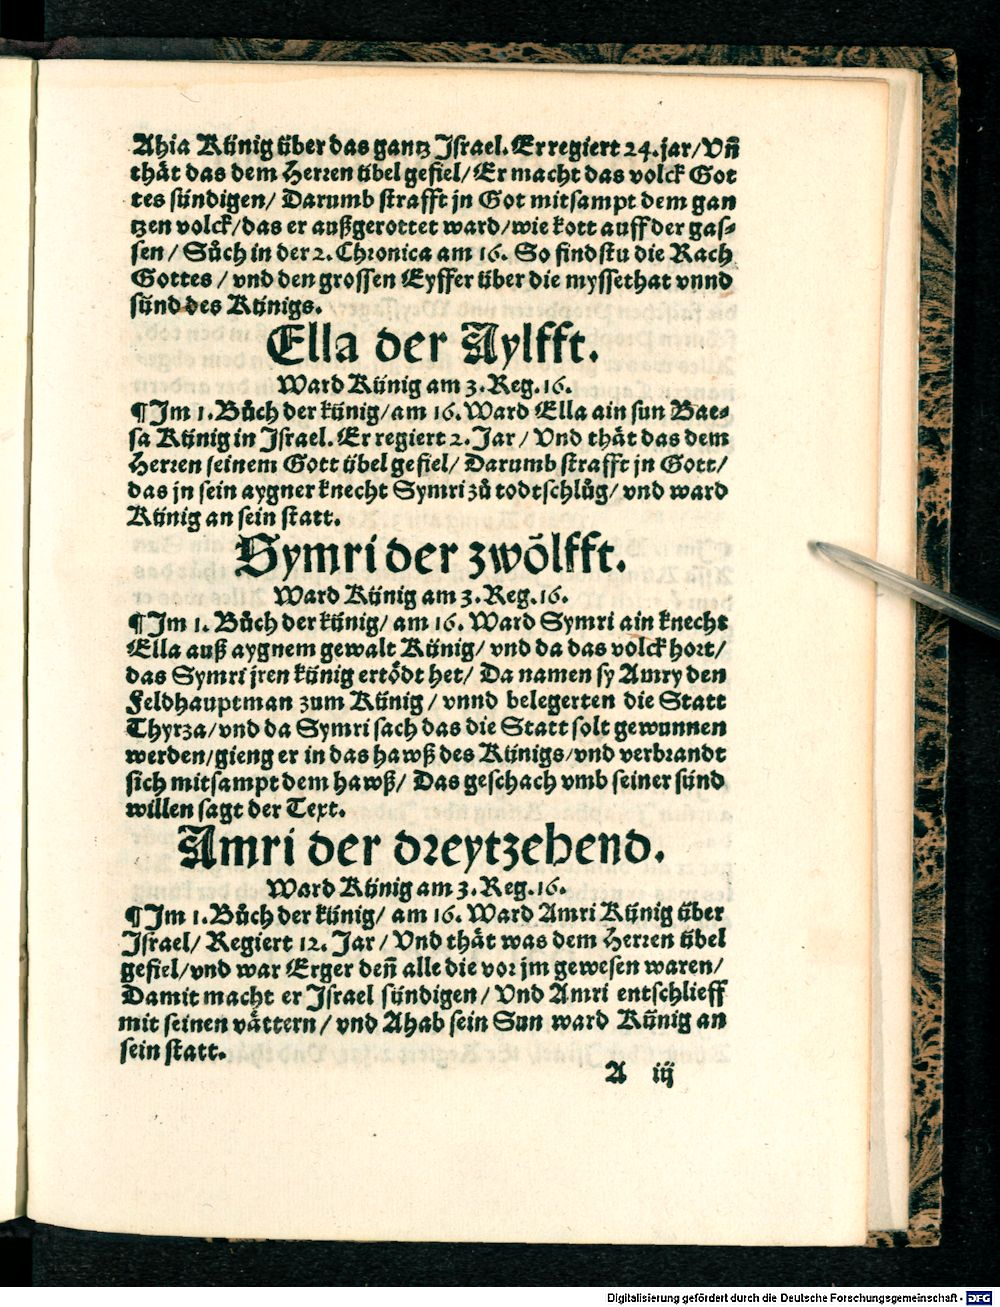 Ahia Künig über das gantz Jsrael. Er regiert 24. jar/ Vñ
thät das dem Herren übel gefiel/ Er macht das volck Got
tes sündigen/ Darumb strafft jn Got mitsampt dem gan
tzen volck/ das er außgerottet ward/ wie kott auff der gas⸗
sen/ Sůch in der 2. Chronica am 16. So findstu die Rach
Gottes/ vnd den grossen Eyffer über die myssethat vnnd
sünd des Künigs.
Ella der Aylfft.
Ward Künig am 3. Reg. 16.
¶ Jm 1. Bůch der künig/ am 16. Ward Ella ain sun Bae⸗
sa Künig in Jsrael. Er regiert 2. Jar/ Vnd thät das dem
Herren seinem Gott übel gefiel/ Darumb strafft jn Gott/
das jn sein aygner knecht Symri zů todtschlůg/ vnd ward
Künig an sein statt.
Symri der zwölfft.
Ward Künig am 3. Reg. 16.
¶ Jm 1. Bůch der künig/ am 16. Ward Symri ain knecht
Ella auß aygnem gewalt Künig/ vnd da das volck hort/
das Symri jren künig ertödt het/ Da namen sy Amry den
Feldhauptman zum Künig/ vnnd belegerten die Statt
Thyrza/ vnd da Symri sach das die Statt solt gewunnen
werden/ gieng er in das hawß des Künigs/ vnd verbrandt
sich mitsampt dem hawß/ Das geschach vmb seiner sünd
willen sagt der Text.
Amri der dreytzehend.
Ward Künig am 3. Reg. 16.
¶ Jm 1. Bůch der künig/ am 16. Ward Amri Künig über
Jsrael/ Regiert 12. Jar/ Vnd thät was dem Herren übel
gefiel/ vnd war Erger deñ alle die vor jm gewesen waren/
Damit macht er Jsrael sündigen/ Vnd Amri entschlieff
mit seinen vättern/ vnd Ahab sein Sun ward Künig an
sein statt.
A iij
Digitalisierung gefördert durch die Deutsche Forschungsgemeinschaft - DFG